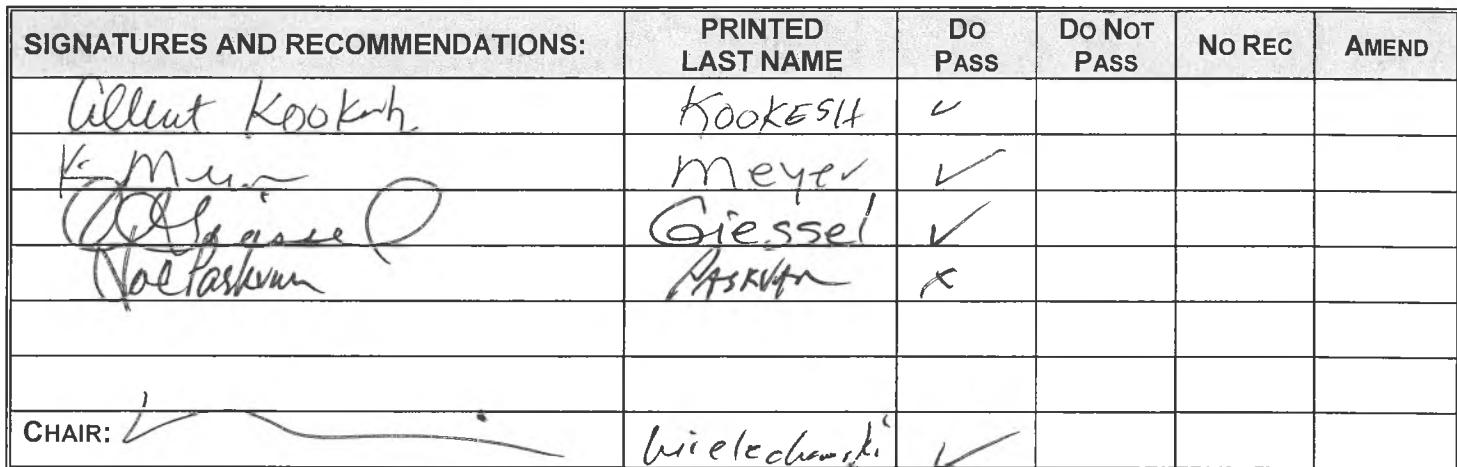 SIGNATURES AND RECOMMENDATIONS: PRINTED LAST NAME DO PASS DO NOT PASS NO REC AMEND
Albert Kookesh KOOKESH ✓
K Meyer Meyer ✓
Giessel Giessel ✓
Joe Paskvan PASKVAN x
CHAIR: Wielechowski ✓